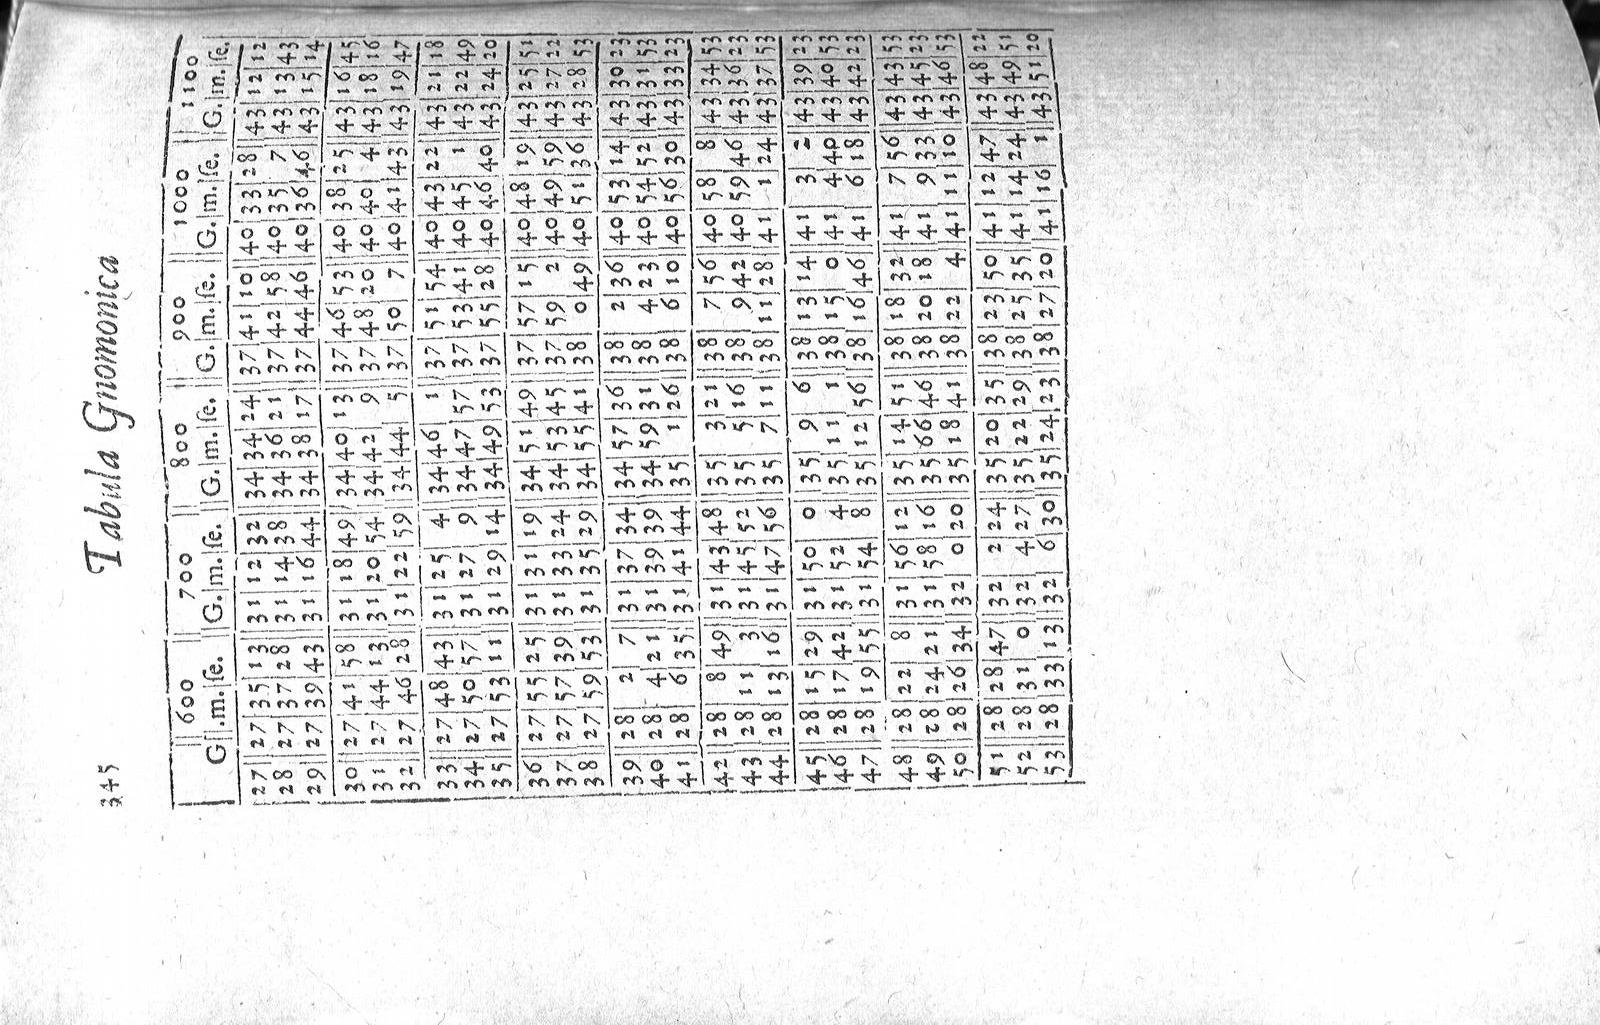 345 Tabula Gnomonica
600 700 800 900 1000 1100
G.m.ſe. G.m.ſe. G.m.ſe. G.m.ſe. G.m.ſe. G.m.ſe.
27 27 35 13 31 12 32 34 34 24 37 41 10 40 33 28 43 12 12
28 27 37 28 31 14 38 34 36 21 37 42 58 40 35 7 43 13 43
29 27 39 43 31 16 44 34 38 17 37 44 46 40 36 46 43 15 14
30 27 41 58 31 18 49 34 40 13 37 46 53 40 38 25 43 16 45
31 27 44 13 31 20 54 34 42 9 37 48 20 40 40 4 43 18 16
32 27 46 28 31 22 59 34 44 5 37 50 7 40 41 43 43 19 47
33 27 48 43 31 25 4 34 46 1 37 51 54 40 43 22 43 21 18
34 27 50 57 31 27 9 34 47 57 37 53 41 40 45 1 43 22 49
35 27 53 11 31 29 14 34 49 53 37 55 28 40 46 40 43 24 20
36 27 55 25 31 31 19 34 51 49 37 57 15 40 48 19 43 25 51
37 27 57 39 31 33 24 34 53 45 37 59 2 40 49 59 43 27 22
38 27 59 53 31 35 29 34 55 41 38 0 49 40 51 36 43 28 53
39 28 2 7 31 37 34 34 57 36 38 2 36 40 53 14 43 30 23
40 28 4 21 31 39 39 34 59 31 38 4 23 40 54 52 43 31 53
41 28 6 35 31 41 44 35 1 26 38 6 10 40 56 30 43 33 23
42 28 8 49 31 43 48 35 3 21 38 7 56 40 58 8 43 34 53
43 28 11 3 31 45 52 35 5 16 38 9 42 40 59 46 43 36 23
44 28 13 16 31 47 56 35 7 11 38 11 28 41 1 24 43 37 53
45 28 15 29 31 50 0 35 9 6 38 13 14 41 3 2 43 39 23
46 28 17 42 31 52 4 35 11 1 38 15 0 41 4 40 43 40 53
47 28 19 55 31 54 8 35 12 56 38 16 46 41 6 18 43 42 23
48 28 22 8 31 56 12 35 14 51 38 18 32 41 7 56 43 43 53
49 28 24 21 31 58 16 35 66 46 38 20 18 41 9 33 43 45 23
50 28 26 34 32 0 20 35 18 41 38 22 4 41 11 10 43 46 53
51 28 28 47 32 2 24 35 20 35 38 23 50 41 12 47 43 48 22
52 28 31 0 32 4 27 35 22 29 38 25 35 41 14 24 43 49 51
53 28 33 13 32 6 30 35 24 23 38 27 20 41 16 1 43 51 20